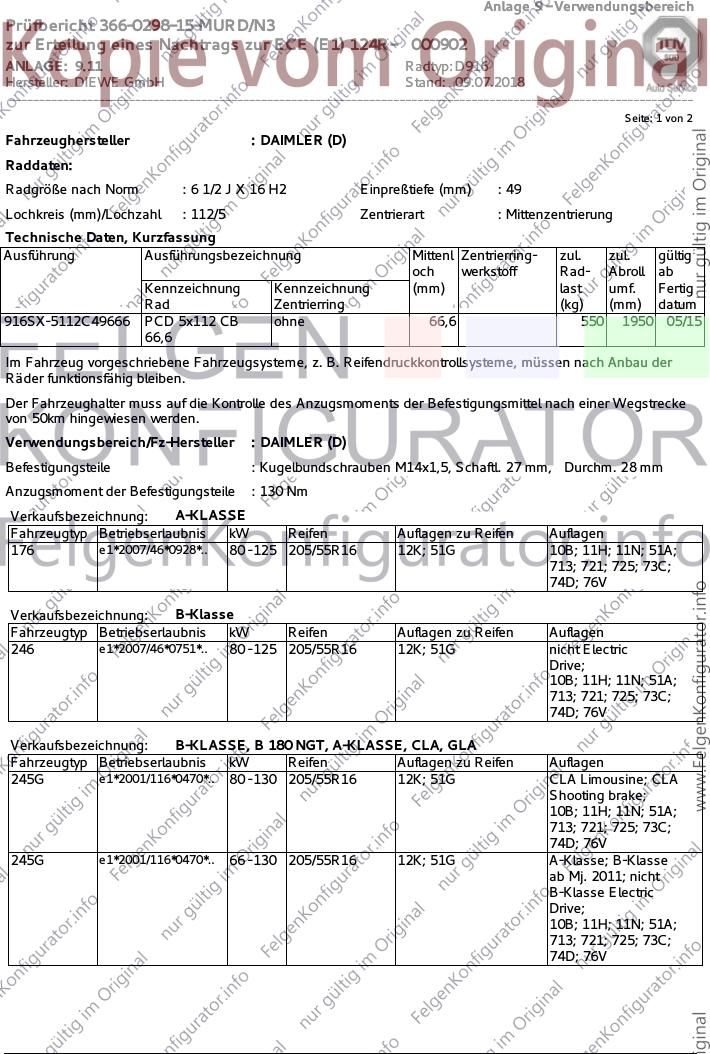 Anlage 9 - Verwendungsbereich
Prüfbericht 366-0298-15-MURD/N3
zur Erteilung eines Nachtrags zur ECE (E1) 124R - 000902
Kopie vom Original
ANLAGE: 9.11 Radtyp: D916
Hersteller: DIEWE GmbH Stand: 09.07.2018
TÜV
SÜD
Auto Service
Seite: 1 von 2
Fahrzeughersteller : DAIMLER (D)
Raddaten:
Radgröße nach Norm : 6 1/2 J X 16 H2 Einpreßtiefe (mm) : 49
Lochkreis (mm)/Lochzahl : 112/5 Zentrierart : Mittenzentrierung
Technische Daten, Kurzfassung
Ausführung Ausführungsbezeichnung Mittenl Zentrierring- zul. zul. gültig
och werkstoff Rad- Abroll ab
Kennzeichnung Kennzeichnung (mm) last umf. Fertig
Rad Zentrierring (kg) (mm) datum
916SX-5112C49666 PCD 5x112 CB ohne 66,6 550 1950 05/15
66,6
Im Fahrzeug vorgeschriebene Fahrzeugsysteme, z. B. Reifendruckkontrollsysteme, müssen nach Anbau der
Räder funktionsfähig bleiben.
FELGEN
Der Fahrzeughalter muss auf die Kontrolle des Anzugsmoments der Befestigungsmittel nach einer Wegstrecke
von 50km hingewiesen werden.
KONFIGURATOR
Verwendungsbereich/Fz-Hersteller : DAIMLER (D)
Befestigungsteile : Kugelbundschrauben M14x1,5, Schaftl. 27 mm, Durchm. 28 mm
Anzugsmoment der Befestigungsteile : 130 Nm
Verkaufsbezeichnung: A-KLASSE
Fahrzeugtyp Betriebserlaubnis kW Reifen Auflagen zu Reifen Auflagen
176 e1*2007/46*0928*.. 80-125 205/55R16 12K; 51G 10B; 11H; 11N; 51A;
713; 721; 725; 73C;
74D; 76V
FelgenKonfigurator.info
Verkaufsbezeichnung: B-Klasse
Fahrzeugtyp Betriebserlaubnis kW Reifen Auflagen zu Reifen Auflagen
246 e1*2007/46*0751*.. 80-125 205/55R16 12K; 51G nicht Electric
Drive;
10B; 11H; 11N; 51A;
713; 721; 725; 73C;
74D; 76V
Verkaufsbezeichnung: B-KLASSE, B 180 NGT, A-KLASSE, CLA, GLA
Fahrzeugtyp Betriebserlaubnis kW Reifen Auflagen zu Reifen Auflagen
245G e1*2001/116*0470*.. 80-130 205/55R16 12K; 51G CLA Limousine; CLA
Shooting brake;
10B; 11H; 11N; 51A;
713; 721; 725; 73C;
74D; 76V
245G e1*2001/116*0470*.. 66-130 205/55R16 12K; 51G A-Klasse; B-Klasse
ab Mj. 2011; nicht
B-Klasse Electric
Drive;
10B; 11H; 11N; 51A;
713; 721; 725; 73C;
74D; 76V
nur gültig im Original
www.FelgenKonfigurator.info